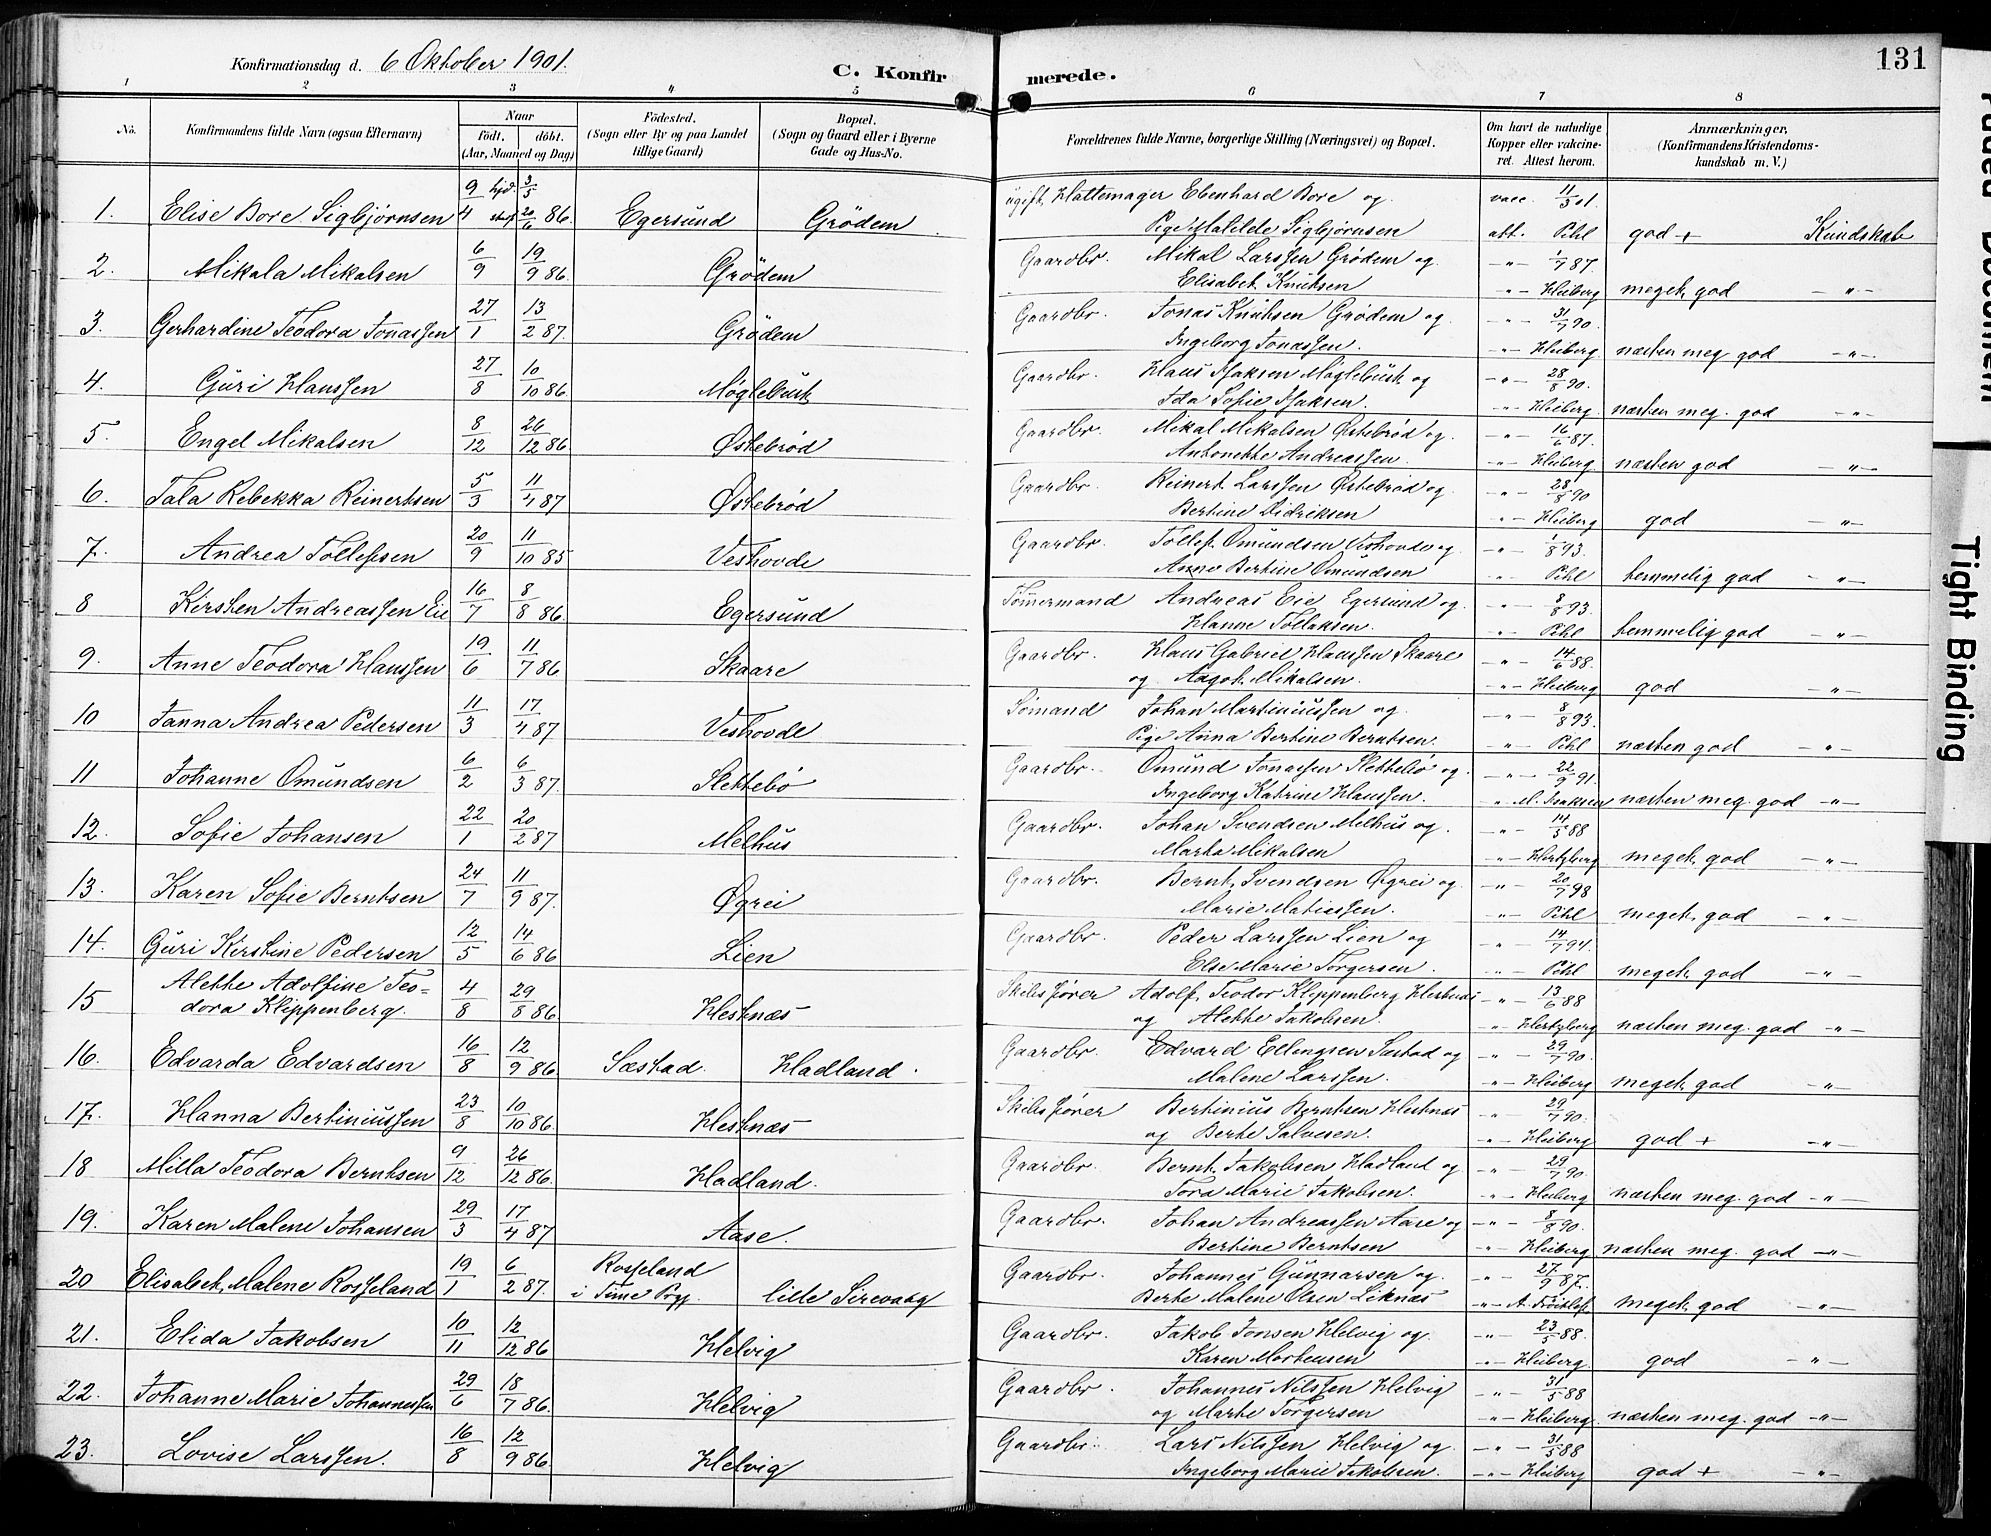 Konfirmationsdag d. 6 Oktober 1901.
C. Konfirmerede.
131
1 2 3 4 5 6 7 8
No.
Konfirmandens fulde Navn (ogsaa Efternavn)
Naar
født. døbt.
(Aar, Maaned og Dag)
Fødested.
(Sogn eller By og paa Landet
tillige Gaard)
Bopæl.
(Sogn og Gaard eller i Byerne
Gade og Hus-No.
Forældrenes fulde Navne, borgerlige Stilling (Næringsvei) og Bopæl.
Om havt de naturlige
Kopper eller vakcine-
ret. Attest herom.
Anmærkninger,
(Konfirmandens Kristendoms-
kundskab m. V.)
1. Elise Bore Sigbjørnsen 9/4 hjd. 3/5 20/6 86. Egersund Grødem ugift Hattemager Ebenhard Bore og vacc. 11/5 01.
Pige Matilde Sigbjørnsen att. Pihl god + Kundskab
2. Mikala Mikalsen 6/9 19/9 86. Grødem Gaardbr. Mikal Larssen Grødem og -"- 1/7 87.
Elisabet Knutsen -"- Heiberg meget god -"-
3. Gerhardine Teodora Jonassen 27/1 13/2 87. Grødem Gaardbr. Jonas Knutsen Grødem og -"- 31/7 90.
Ingeborg Jonassen. -"- Heiberg næsten meg god -"-
4. Guri Hanssen 27/8 10/10 86 Møglebust Gaardbr. Hans Isaksen Møglebust og -"- 28/8 90.
Ida Sofie Isaksen. -"- Heiberg næsten meg. god -"-
5. Engel Mikalsen 8/12 26/12 86 Østebrød Gaardbr. Mikal Mikalsen Østebrød og -"- 16/6 87.
Antonette Andreassen. -"- Heiberg næsten god -"-
6. Tala Rebekka Reinertsen 5/3 11/4 87 Østebrød Gaardbr. Reinert Larssen Østebrød og -"- 28/8 90
Bertine Didriksen -"- Heiberg god -"-
7. Andrea Tollefsen 20/9 11/10 85 Veshovde Gaardbr. Tollef Omundsen Veshovde og -"- 1/8 93.
Anne Bertine Omundsen -"- Pihl temmelig god -"-
8 Kirsten Andreassen Eie 16/7 8/8 86. Egersund Tømmermand Andreas Eie Egersund og -"- 8/8 93.
Hanne Tollaksen. -"- Pihl temmelig god -"-
9. Anne Teodora Hanssen 19/6 11/7 86 Skaare Gaardbr. Hans Gabriel Hanssen Skaare -"- 14/6 88.
og Aagot Mikalsen. -"- Heiberg god -"-
10 Janna Andrea Pedersen 11/3 17/4 87 Veshovde Sømand Johan Martiniussen og -"- 8/8 93.
Pige Anna Bertine Berntsen. -"- Pihl næsten god -"-
11 Johanne Omundsen 6/2 6/3 87. Slettebø Gaardbr. Omund Jonassen Slettebø og -"- 22/9 91.
Ingeborg Katrine Hanssen. " M. Isaksen næsten meg. god -"-
12. Sofie Johansen 22/1 20/2 87 Melhus Gaardbr. Johan Svendsen Melhus og -"- 14/5 88
Marta Mikalsen -"- Hertzberg meget god -"-
13. Karen Sofie Berntsen 24/7 11/9 87. Øgrei Gaardbr. Bernt Svendsen Øgrei og -"- 20/7 98
Marie Matiassen. -"- Pihl meget god -"-
14. Guri Kirstine Pedersen 12/5 14/6 86 Lien Gaardbr. Peder Larssen Lien og -"- 14/7 94.
Else Marie Torgersen. -"- Pihl meget god -"-
15 Alette Adolfine Teo-
dora Klippenberg. 4/8 29/8 86 Hestnæs Skibsfører Adolf Teodor Klippenberg Hestnæs -"- 13/6 88
og Alette Jakobsen. -"- Hertzberg næsten meg. god -"-
16. Edvarda Edvardsen 16/8 12/9 86. Sæstad. Hadland. Gaardbr. Edvard Ellingsen Sæstad og -"- 29/7 90.
Malene Larssen. -"- Heiberg meget god -"-
17. Hanna Bertiniussen 23/8 10/10 86. Hestnæs Skibsfører Bertinius Berntsen Hestnæs -"- 29/7 90.
og Berte Salvesen. -"- Heiberg god + -"-
18 Milla Teodora Berntsen 9/12 26/12 86. Hadland. Gaardbr. Bernt Jakobsen Hadland og -"- 29/7 90
Tora Marie Jakobsen. -"- Heiberg næsten meg. god -"-
19. Karen Malene Johansen 29/3 17/4 87 Aase. Gaardbr. Johan Andreassen Aase og -"- 8/8 90.
Bertine Berntsen -"- Heiberg næsten meg. god -"-
20 Elisabet Malene Rosseland 19/1 6/2 87. Rosseland
i Time Pgj. lille Sirevaag Gaardbr. Johannes Gunnarsen og -"- 27/9 87.
Berte Malene Olsen Liknæs -"- A. Frøitlef meget god -"-
21. Elida Jakobsen 10/11 12/12 86 Helvig Gaardbr. Jakob Jonsen Helvig og -"- 23/5 88.
Karen Mortensen -"- Heiberg god -"-
22. Johanne Marie Johannessen 29/6 18/7 86. Helvig Gaardbr. Johannes Nilssen Helvig -"- 31/5 88
og Marte Torgersen -"- Heiberg næsten meg. god -"-
23. Lovise Larssen. 16/8 12/9 86 Helvig Gaardbr. Lars Nilssen Helvig og -"- 31/5 88
Ingeborg Marie Jakobsen. -"- Heiberg god + -"-
Faded Document
Tight Binding